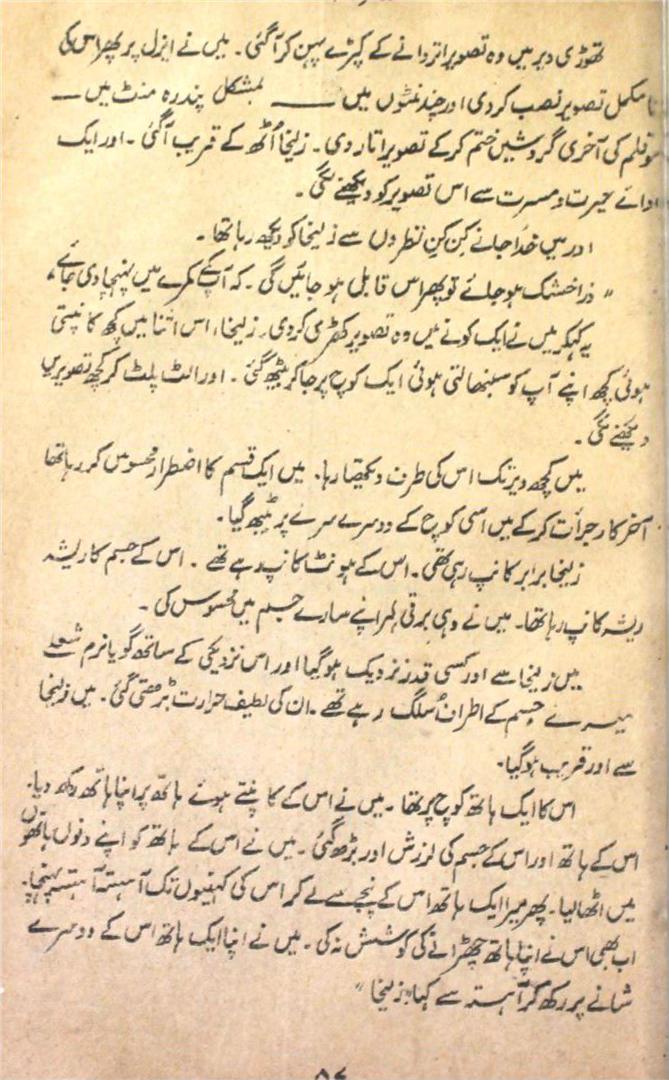 تھوڑی دیر میں وہ تصویر اتروانے کے کپڑے پہن کر آگئی۔ میں نے ایزل پر پھر اس کی
نامکمل تصویر نصب کر دی اور چند منٹوں میں ــــــ بمشکل پندرہ منٹ میں ــــ
موقلم کی آخری گردشیں ختم کر کے تصویر اتار دی۔ زلیخا اُٹھ کے قریب آگئی۔ اور ایک
ادائے حیرت و مسرت سے اس تصویر کو دیکھنے لگی۔
اور میں خدا جانے کن کن نظروں سے زلیخا کو دیکھ رہا تھا۔
"ذرا خشک ہو جائے تو پھر اس قابل ہو جائیں گی۔ کہ آپکے کمرے میں پہنچا دی جائے"
یہ کہکر میں نے ایک کونے میں وہ تصویر کھڑی کر دی۔ زلیخا، اس اثنا میں کچھ کانپتی
ہوئی کچھ اپنے آپ کو سنبھالتی ہوئی ایک کوچ پر جا کر بیٹھ گئی۔ اور الٹ پلٹ کر کچھ تصویریں
دیکھنے لگی۔
میں کچھ دیر تک اس کی طرف دیکھتا رہا۔ میں ایک قسم کا اضطرار محسوس کر رہا تھا
آخر کار جرأت کر کے میں اسی کوچ کے دوسرے سرے پر بیٹھ گیا۔
زلیخا برابر کانپ رہی تھی۔ اس کے ہونٹ کانپ رہے تھے۔ اس کے جسم کا ریشہ
ریشہ کانپ رہا تھا۔ میں نے وہی برقی لہر اپنے سارے جسم میں محسوس کی۔
میں زلیخا سے اور کسی قدر نزدیک ہو گیا اور اس نزدیکی کے ساتھ گویا نرم شعلے
میرے جسم کے اطراف سلگ رہے تھے۔ ان کی لطیف حرارت بڑھتی گئی۔ میں زلیخا
سے اور قریب ہو گیا۔
اس کا ایک ہاتھ کوچ پر تھا۔ میں نے اس کے کانپتے ہوئے ہاتھ پر اپنا ہاتھ رکھ دیا۔
اس کے ہاتھ اور اس کے جسم کی لرزش اور بڑھ گئی۔ میں نے اس کے ہاتھ کو اپنے دونوں ہاتھوں
میں اٹھا لیا۔ پھر میرا ایک ہاتھ اس کے پنجے سے لے کر اس کی کہنیوں تک آہستہ آہستہ پہنچا۔
اب بھی اس نے اپنا ہاتھ چھڑانے کی کوشش نہ کی۔ میں نے اپنا ایک ہاتھ اس کے دوسرے
شانے پر رکھ کر آہستہ سے کہا "زلیخا"